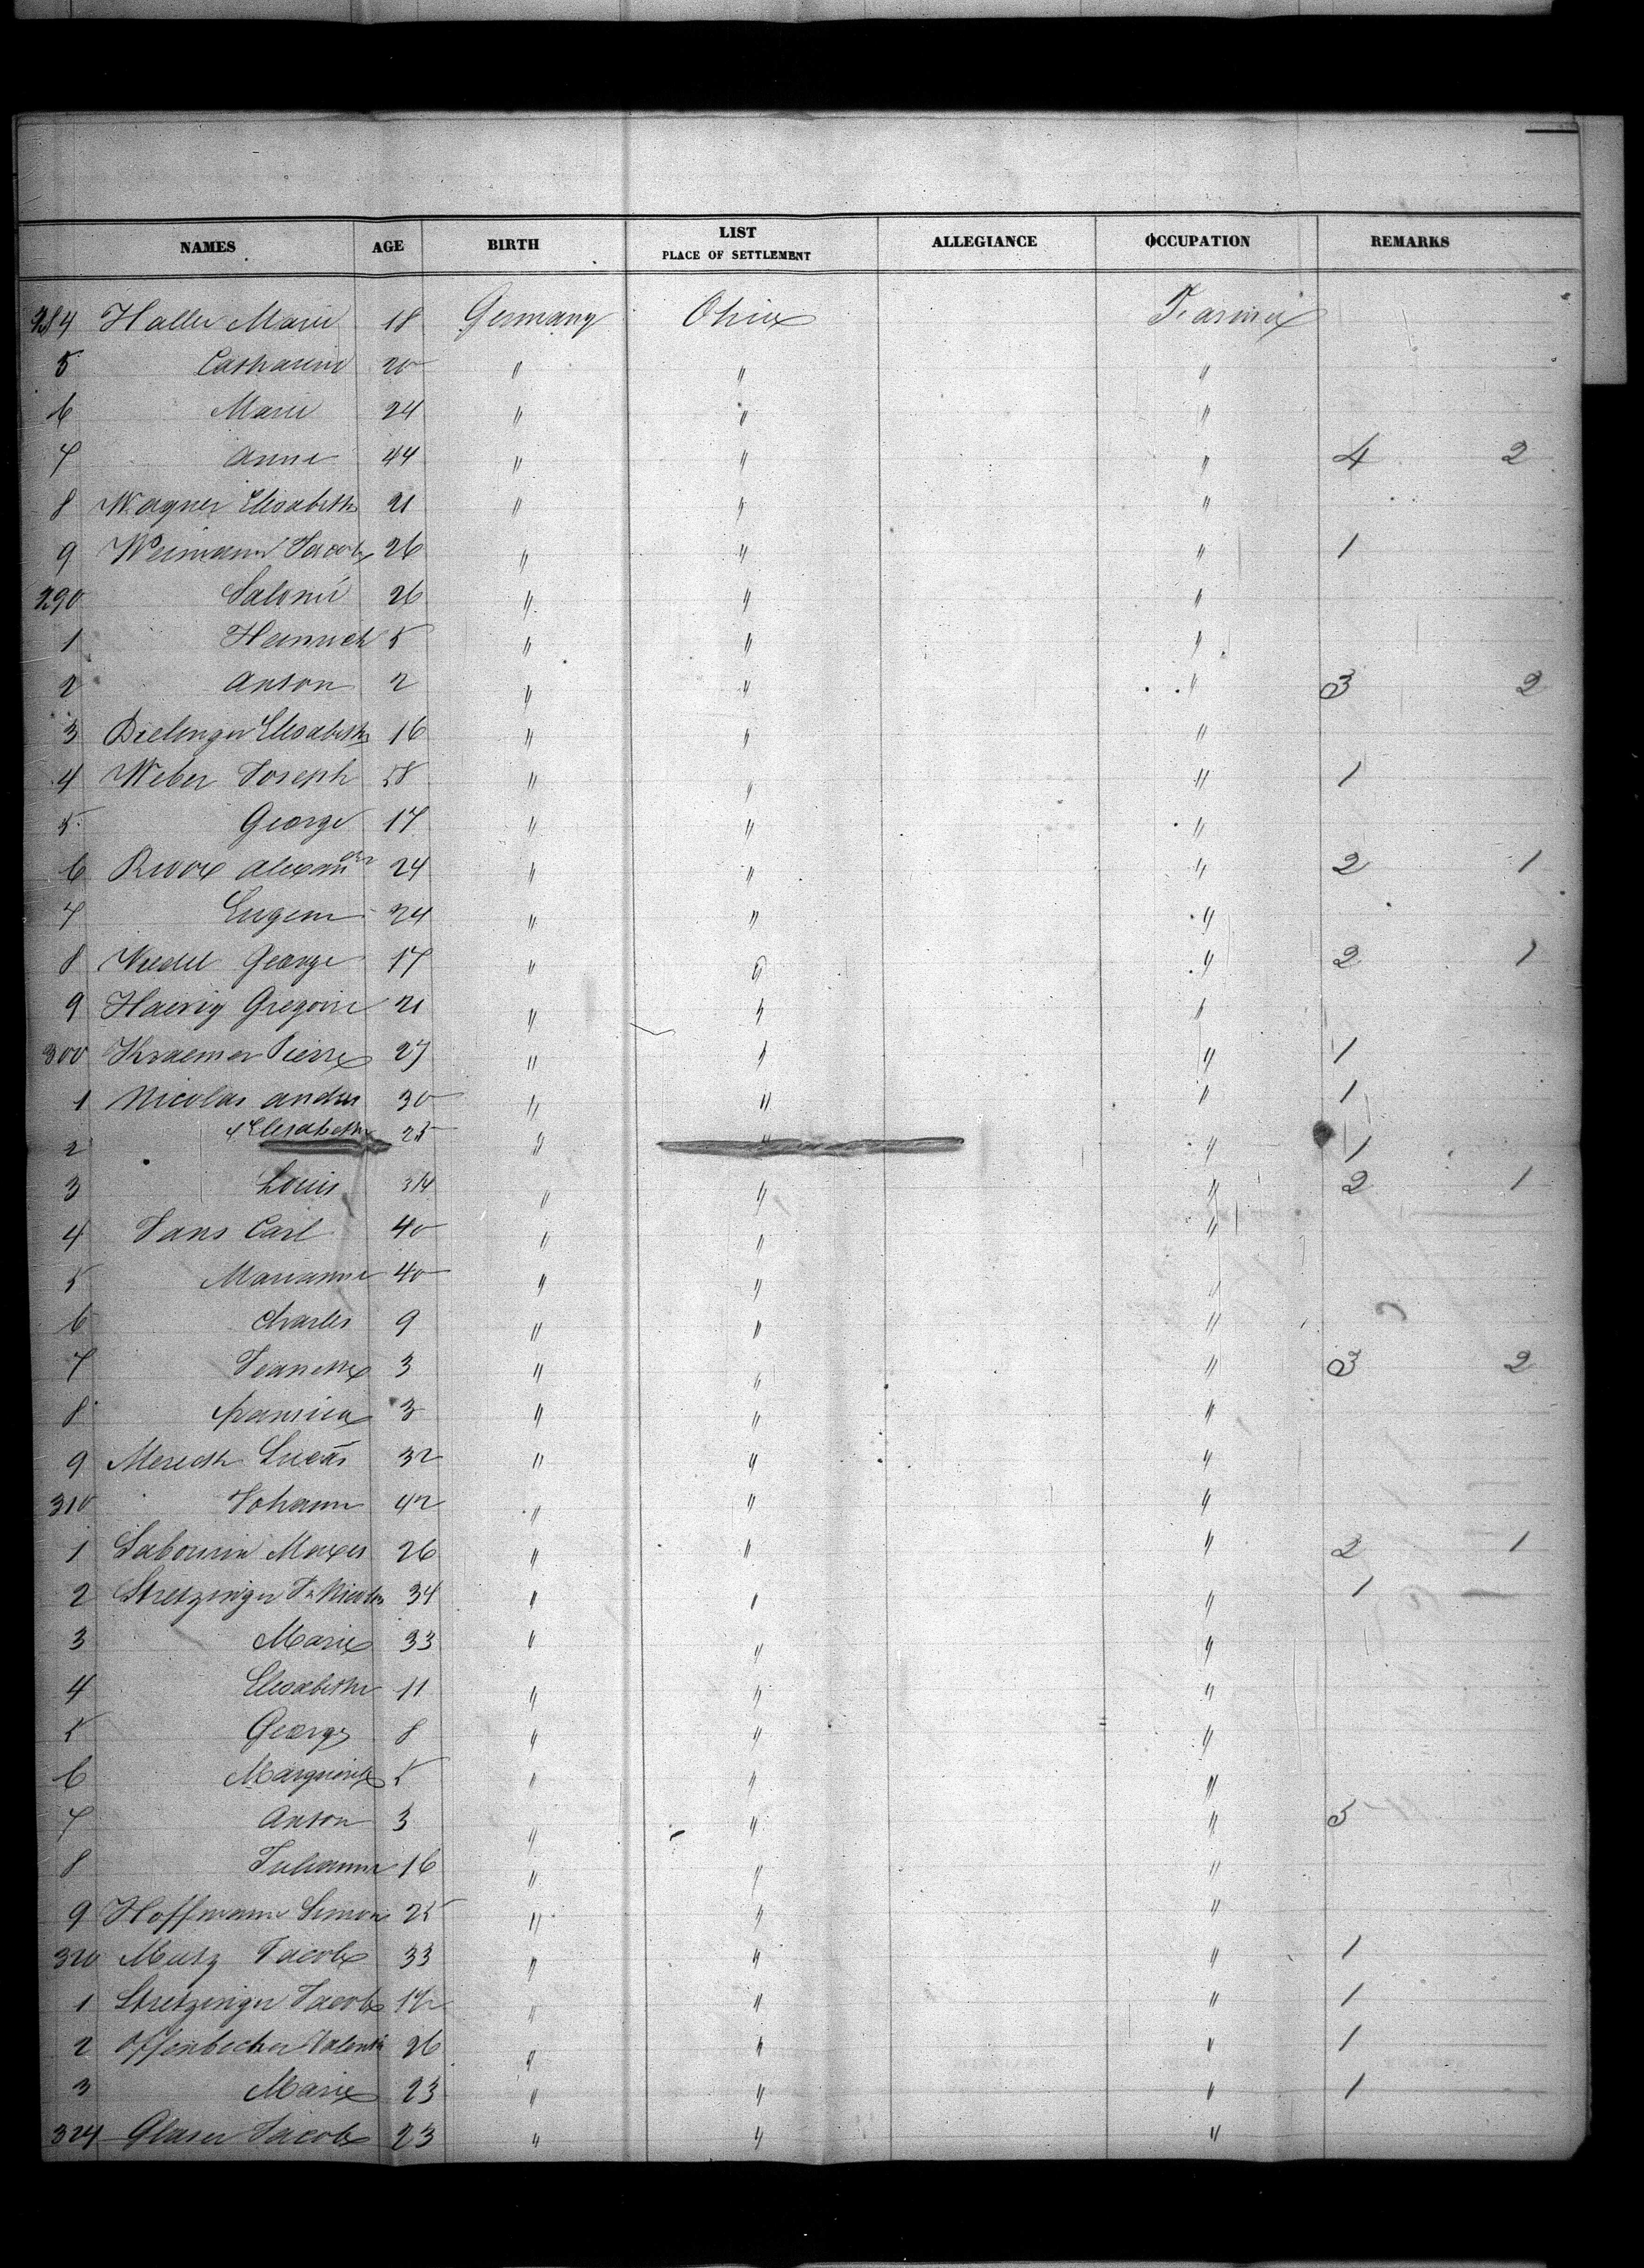 NAMES AGE BIRTH LIST PLACE OF SETTLEMENT ALLEGIANCE OCCUPATION REMARKS
284 Haller Marie 18 Germany Ohio Farmer
5 Catharine 20 " " "
6 Marie 24 " " "
7 Anne 44 " " " 4 2
8 Wagner Elisabeth 21 " " "
9 Weimann Jacob 26 " " " 1
290 Salomé 26 " " "
1 Heinrich 5 " " "
2 Anton 2 " " " 3 2
3 Dielinger Elisabeth 16 " " "
4 Weber Joseph 58 " " " 1
5 George 17 " " "
6 Alexander 24 " " " 2 1
7 Eugene 24 " " "
8 George 17 " " " 2 1
9 Haerig Gregoire 21 " " "
300 Kraemer Pierre 27 " " " 1
1 Nicolas Andre 30 " " " 1
2 Elisabeth 25 " " " 1
3 Louis 34 " " " 2 1
4 Jans Carl 40 " " "
5 Marianne 40 " " "
6 Charles 9 " " "
7 Jeanette 3 " " " 3 2
8 3 " " "
9 Lucas 32 " " "
310 Johann 42 " " "
1 Sabourin 26 " " " 2 1
2 Stretzinger Nicolas 34 " " " 1
3 Marie 33 " " "
4 Elisabethe 11 " " "
5 George 8 " " "
6 Marguerite 5 " " "
7 Anton 3 " " " 5
8 Julianna 16 " " "
9 Hoffmann Simon 25 " " "
320 Mutz Jacob 33 " " " 1
1 Stretzinger Jacob " " " 1
2 Offenbecher Valentin 26 " " " 1
3 Marie 23 " " " 1
324 Glaser Jacob 23 " " "